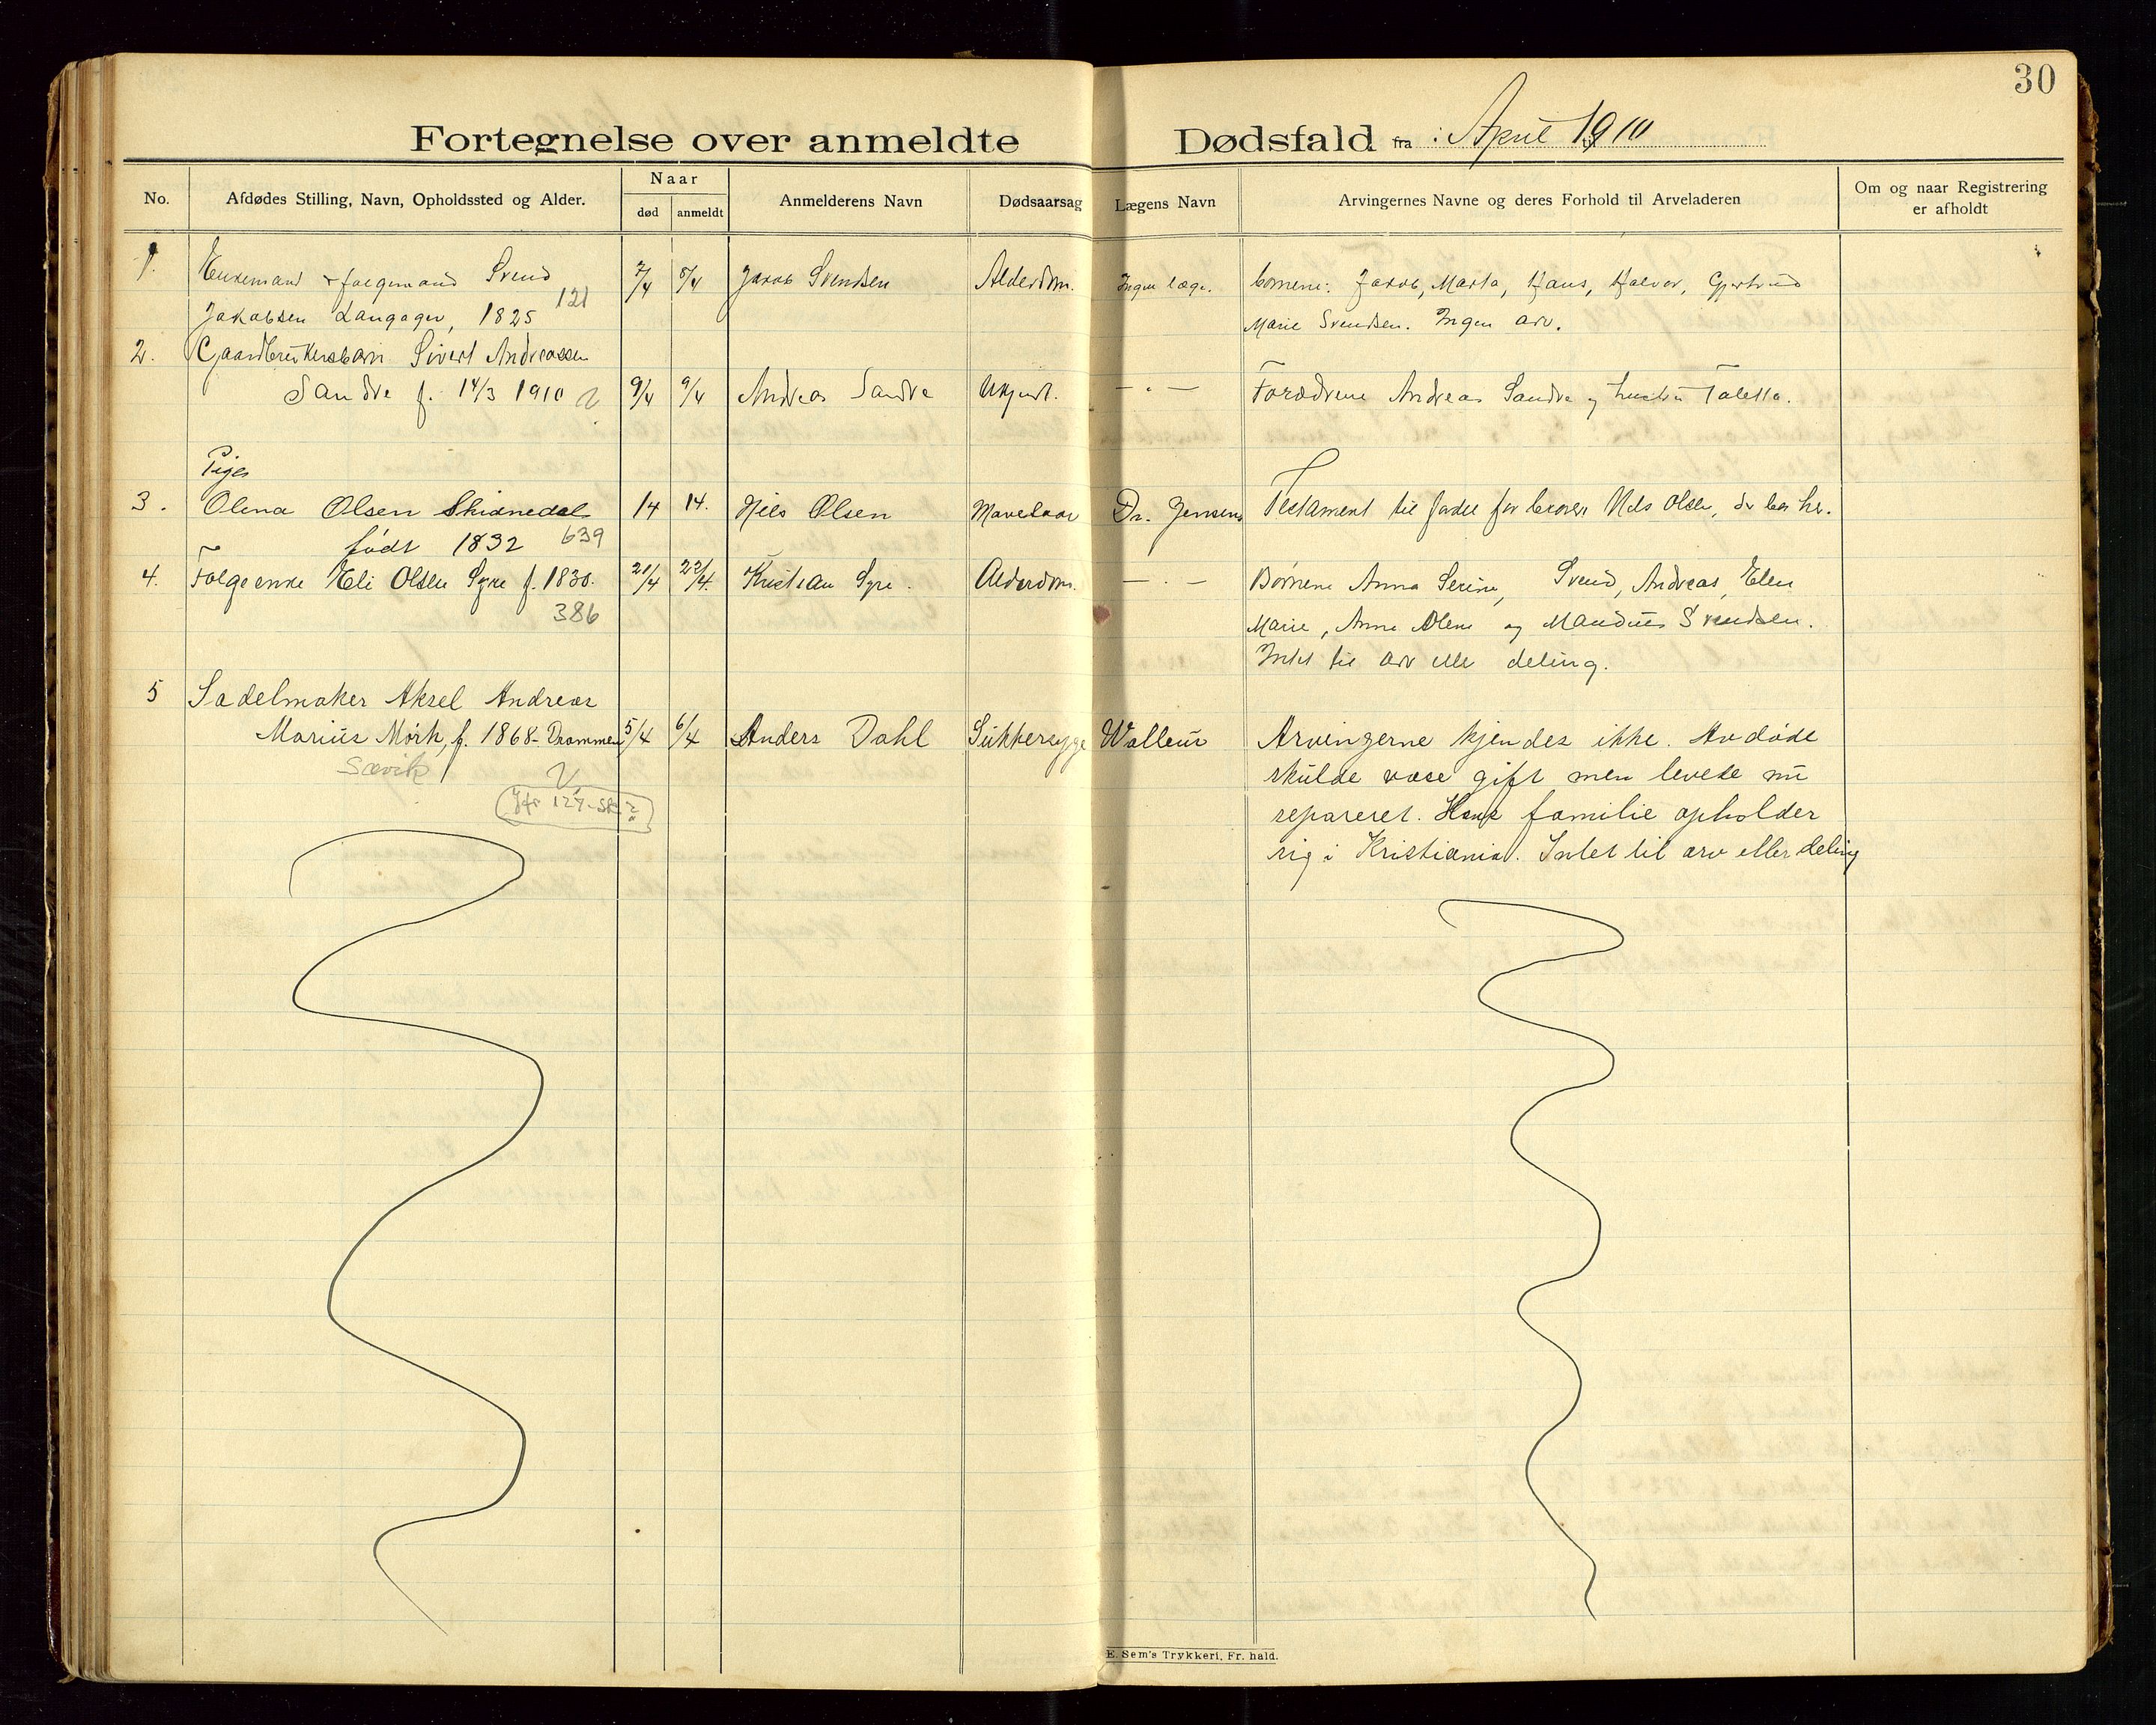 30
Fortegnelse over anmeldte Dødsfald fra i April 1910
No. Afdødes Stilling, Navn, Opholdssted og Alder. Naar død anmeldt Anmelderens Navn Dødsaarsag Lægens Navn Arvingernes Navne og deres Forhold til Arveladeren Om og naar Registrering er afholdt
1. Enkemand + folgemand Svend 7/4 8/4 Jakob Svendsen Alderdom. Ingen læge. børnene: Jakob, Marta, Hans, Halvor, Gjertrud
Jakobsen Langager, 1825 121 Marie Svendsen. Ingen arv.
2. Gaardbrukersbarn Sivert Andreassen
Sandve f. 14/3 1910 9/4 9/4 Andreas Sandve Ukjent. — " — Forældrene Andreas Sandve og hustru Taletta.
Pige
3. Olena Olsen Skidnedal 14 14. Niels Olsen Mavelaar Dr. Jensen Testament til fordel for broren Nels Olsen, der bor her.
født 1832 639
4. Folgeenke Eli Olsen Syre f. 1830. 21/4 22/4. Kristian Syre. Alderdom. — " — Børnene Anna Serine, Svend, Andreas, Elen
386 Marie, Anne Olene og Mandius Svendsen.
Intet til arv eller deling.
5 Sadelmaker Aksel Andreas
Marius Mørk, f. 1868 - Drammen 5/4 6/4 Anders Dahl Sukkersyge Wallem Arvingerne kjendes ikke. Avdøde
Sævik skulde være gift men levede nu
Jfr 127-Sk? separeret. Hans familie opholder
sig i Kristiania. Intet til arv eller deling
E. Sem's Trykkeri, Fr. hald.